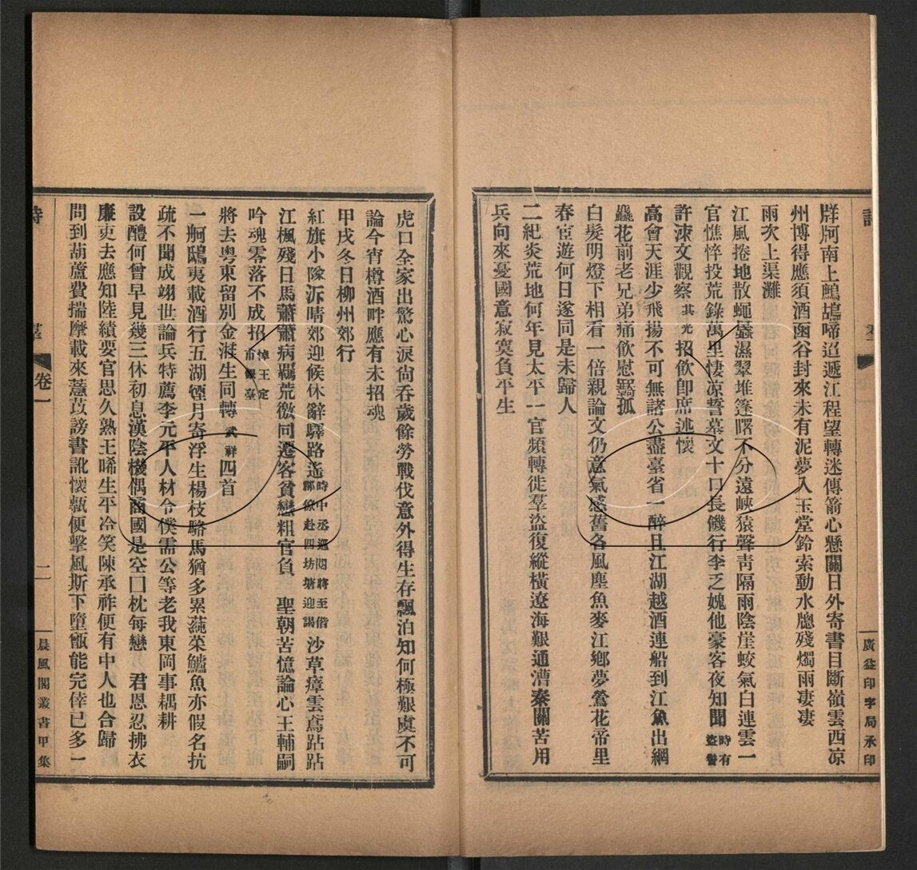 廣益印字局承印
牂牁南上鷓鴣啼迢遞江程望轉迷傳箭心懸關日外寄書目斷嶺雲西凉
州博得應須酒函谷封來未有泥夢入玉堂鈴索動水牕殘燭雨凄凄
雨次上渠灘
江風捲地散蠅蟁濕翠堆篷曙不分遠峽猿聲青隔雨陰崖蛟氣白連雲一
官憔悴投荒錄萬里悽凉誓墓文十口長饑行李乏媿他豪客夜知聞時有盜警
許涑文觀察其光招飲卽席述懷
高會天涯少飛揚不可無諸公盡臺省一醉且江湖越酒連船到江魚出網
花前老兄弟痛飲慰羈孤
白髮明燈下相看一倍親論文仍意氣感舊各風塵魚麥江鄉夢鶯花帝里
春宦遊何日遂同是未歸人
二紀炎荒地何年見太平一官頻轉徙羣盜復縱橫遼海艱通漕秦關苦用
兵向來憂國意寂寞負平生
虎口全家出驚心淚尙吞歲餘勞戰伐意外得生存飄泊知何極艱虞不可
論今宵樽酒畔應有未招魂
甲戌冬日柳州郊行
紅旗小隊泝晴郊迎候休辭驛路遙時中丞選閱將至偕郡僚赴四坊塘迎謁沙草瘴雲鳶跕跕
江楓殘日馬蕭蕭病羈荒徼同遷客貧戀粗官負　聖朝苦憶論心王輔嗣
吟魂零落不成招悼王定甫銀臺
將去粤東留別金湴生同轉武祥四首
一舸鴟夷載酒行五湖煙月寄浮生楊枝駱馬猶多累蒓菜鱸魚亦假名抗
疏不聞成翊世論兵特薦李元平人材令僕需公等老我東岡事耦耕
設醴何曾早見幾三休初息漢陰機偶商國是空囗枕每戀　君恩忍拂衣
廉吏去應知陸績要官思久熟王晞生平冷笑陳承祚便有中人也合歸
問到葫蘆費揣摩載來薏苡謗書訛懷甎便擊風斯下墮甑能完倖已多一
詩　卷一　二　晨風閣叢書甲集